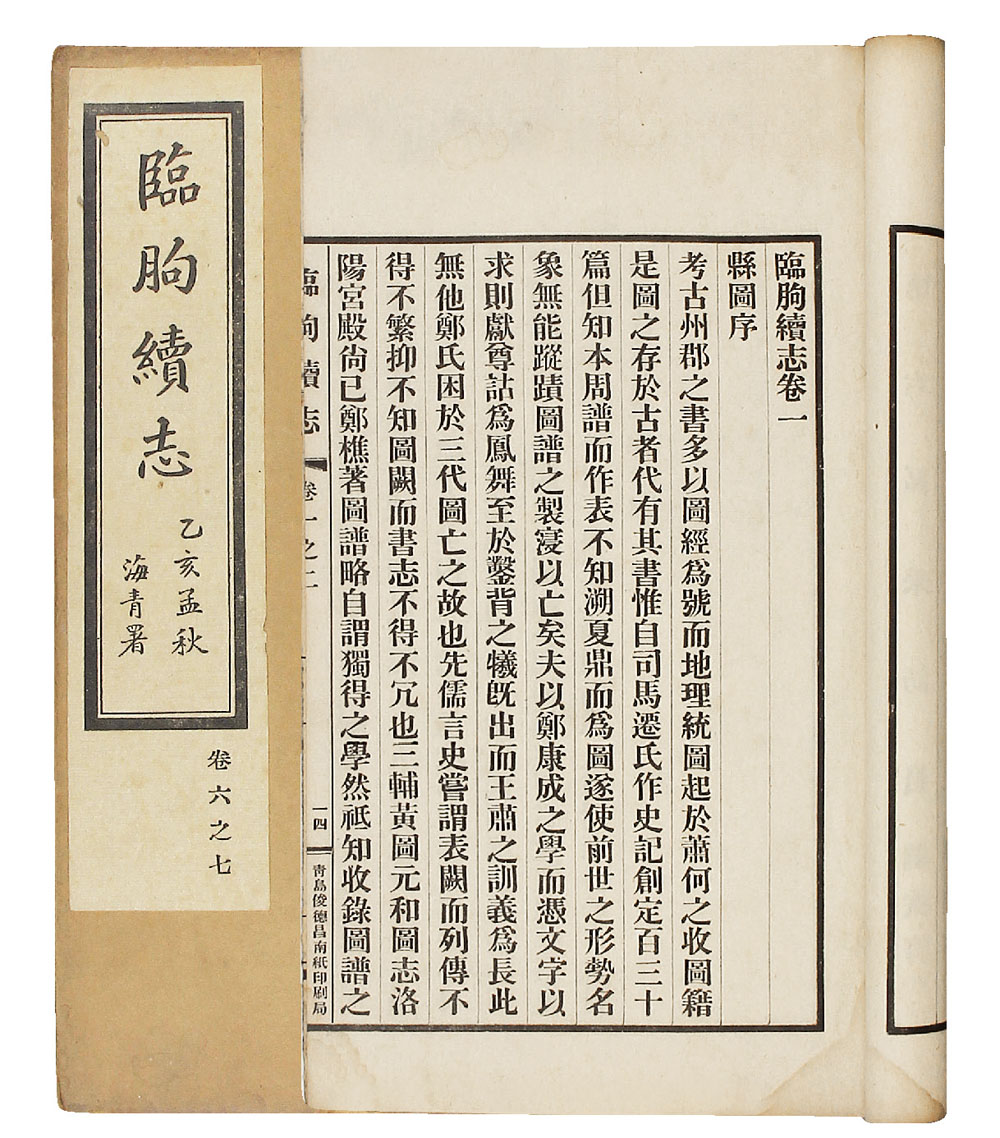 臨朐續志卷一
縣圖序
考古州郡之書多以圖經爲號而地理統圖起於蕭何之收圖籍
是圖之存於古者代有其書惟自司馬遷氏作史記創定百三十
篇但知本周譜而作表不知溯夏鼎而爲圖遂使前世之形勢名
象無能蹤蹟圖譜之製寖以亡矣夫以鄭康成之學而憑文字以
求則獻尊詁爲鳳舞至於鑿背之犧旣出而王肅之訓義爲長此
無他鄭氏困於三代圖亡之故也先儒言史嘗謂表闕而列傳不
得不繁抑不知圖闕而書志不得不冗也三輔黃圖元和圖志洛
陽宮殿尙已鄭樵著圖譜略自謂獨得之學然祗知收錄圖譜之
臨朐續志
卷一之二
一四
靑島俊德昌南紙印刷局
臨朐續志
乙亥孟秋
海青署
卷六之七